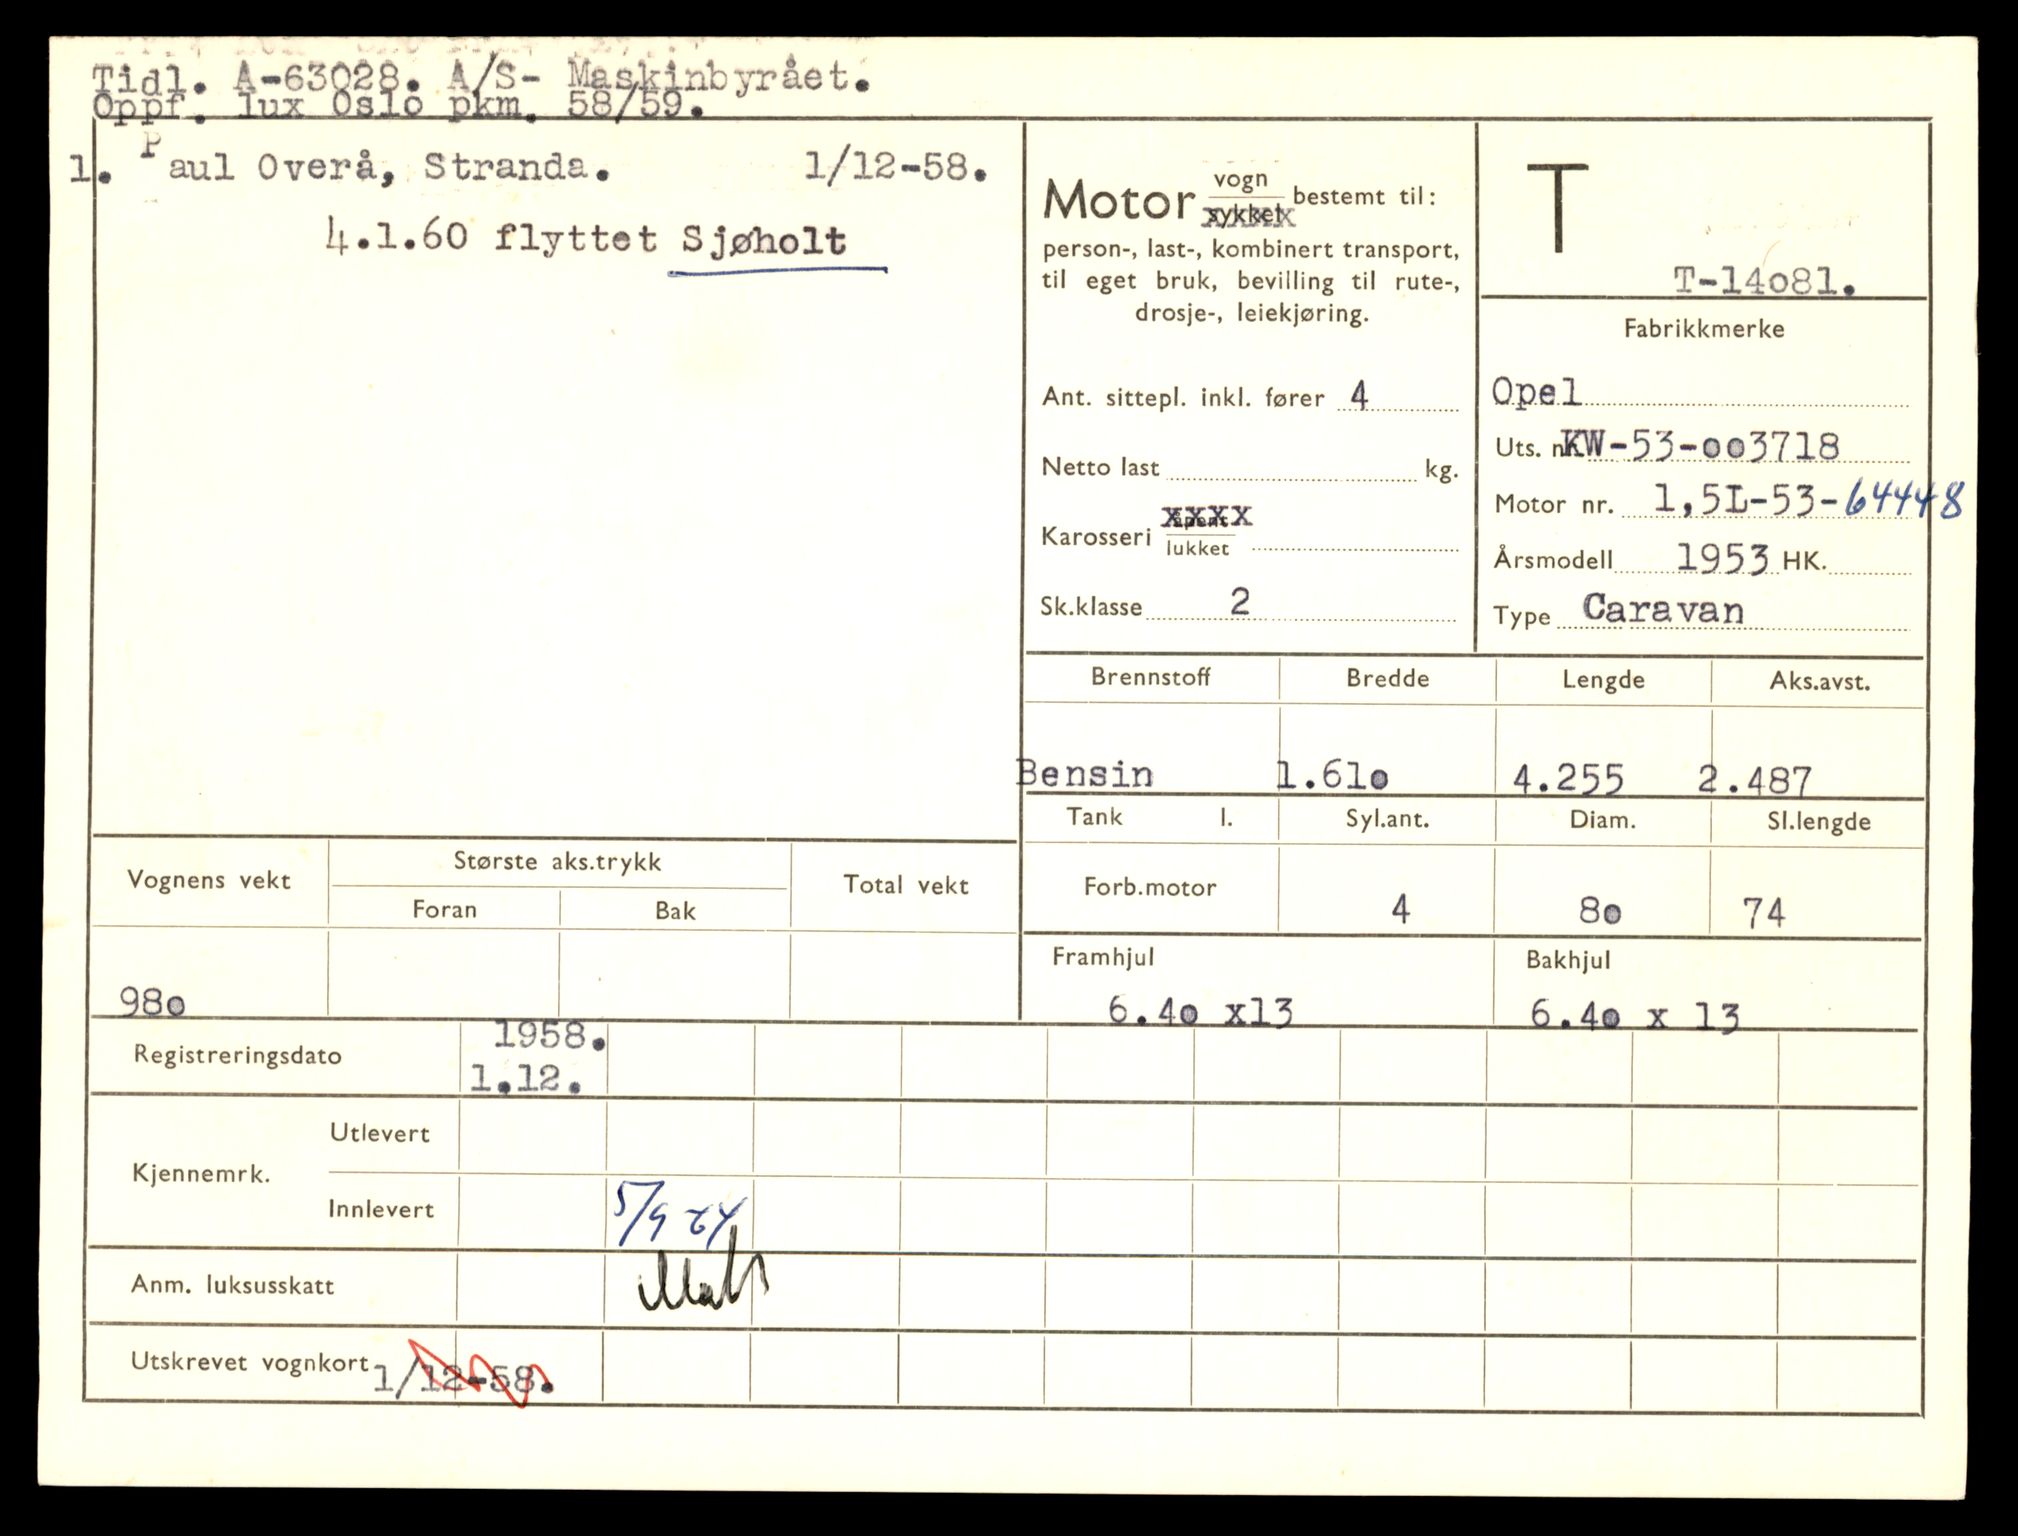 Tidl. A-63028. A/S- Maskinbyrået.
Oppf. lux Oslo pkm. 58/59.
1. Paul Overå, Stranda. 1/12-58.
4.1.60 flyttet Sjøholt
Motor vogn
sykkel bestemt til:
person-, last-, kombinert transport,
til eget bruk, bevilling til rute-,
drosje-, leiekjøring.
Ant. sittepl. inkl. fører 4
Netto last kg.
Karosseri åpent
lukket
Sk.klasse 2
T
T-14o81.
Fabrikkmerke
Opel
Uts. nr. KW-53-oo3718
Motor nr. 1,5L-53-64448
Årsmodell 1953 HK.
Type Caravan
Brennstoff Bredde Lengde Aks.avst.
Bensin 1.61o 4.255 2.487
Tank l. Syl.ant. Diam. Sl.lengde
Forb.motor 4 8o 74
Framhjul Bakhjul
6.4o x13 6.4o x 13
Vognens vekt Største aks.trykk Total vekt
Foran Bak
98o
Registreringsdato 1958.
1.12.
Kjennemrk. Utlevert
Innlevert 5/9
Anm. luksusskatt
Utskrevet vognkort 1/12-58.